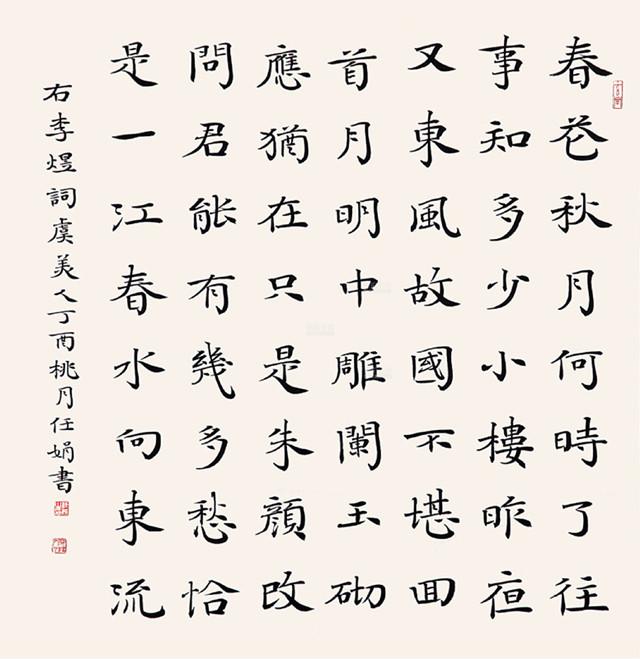 春花秋月何時了往
事知多少小樓昨夜
又東風故國不堪回
首月明中雕闌玉砌
應猶在只是朱顏改
問君能有幾多愁恰
是一江春水向東流
右李煜詞虞美人丁酉桃月任娟書